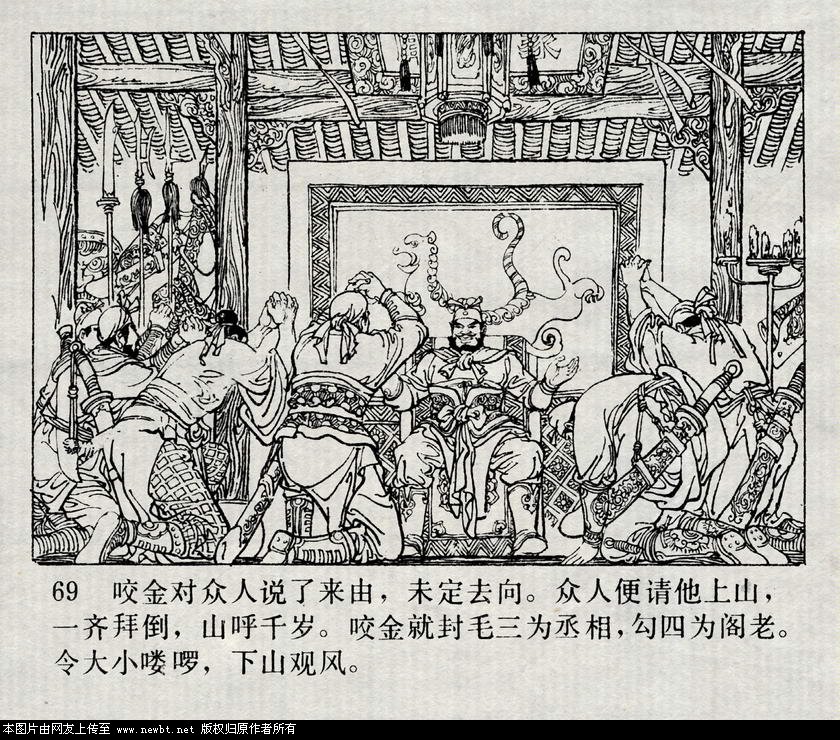 69 咬金对众人说了来由，未定去向。众人便请他上山，
一齐拜倒，山呼千岁。咬金就封毛三为丞相，勾四为阁老。
令大小喽啰，下山观风。
本图片由网友上传至 www.newbt.net 版权归原作者所有